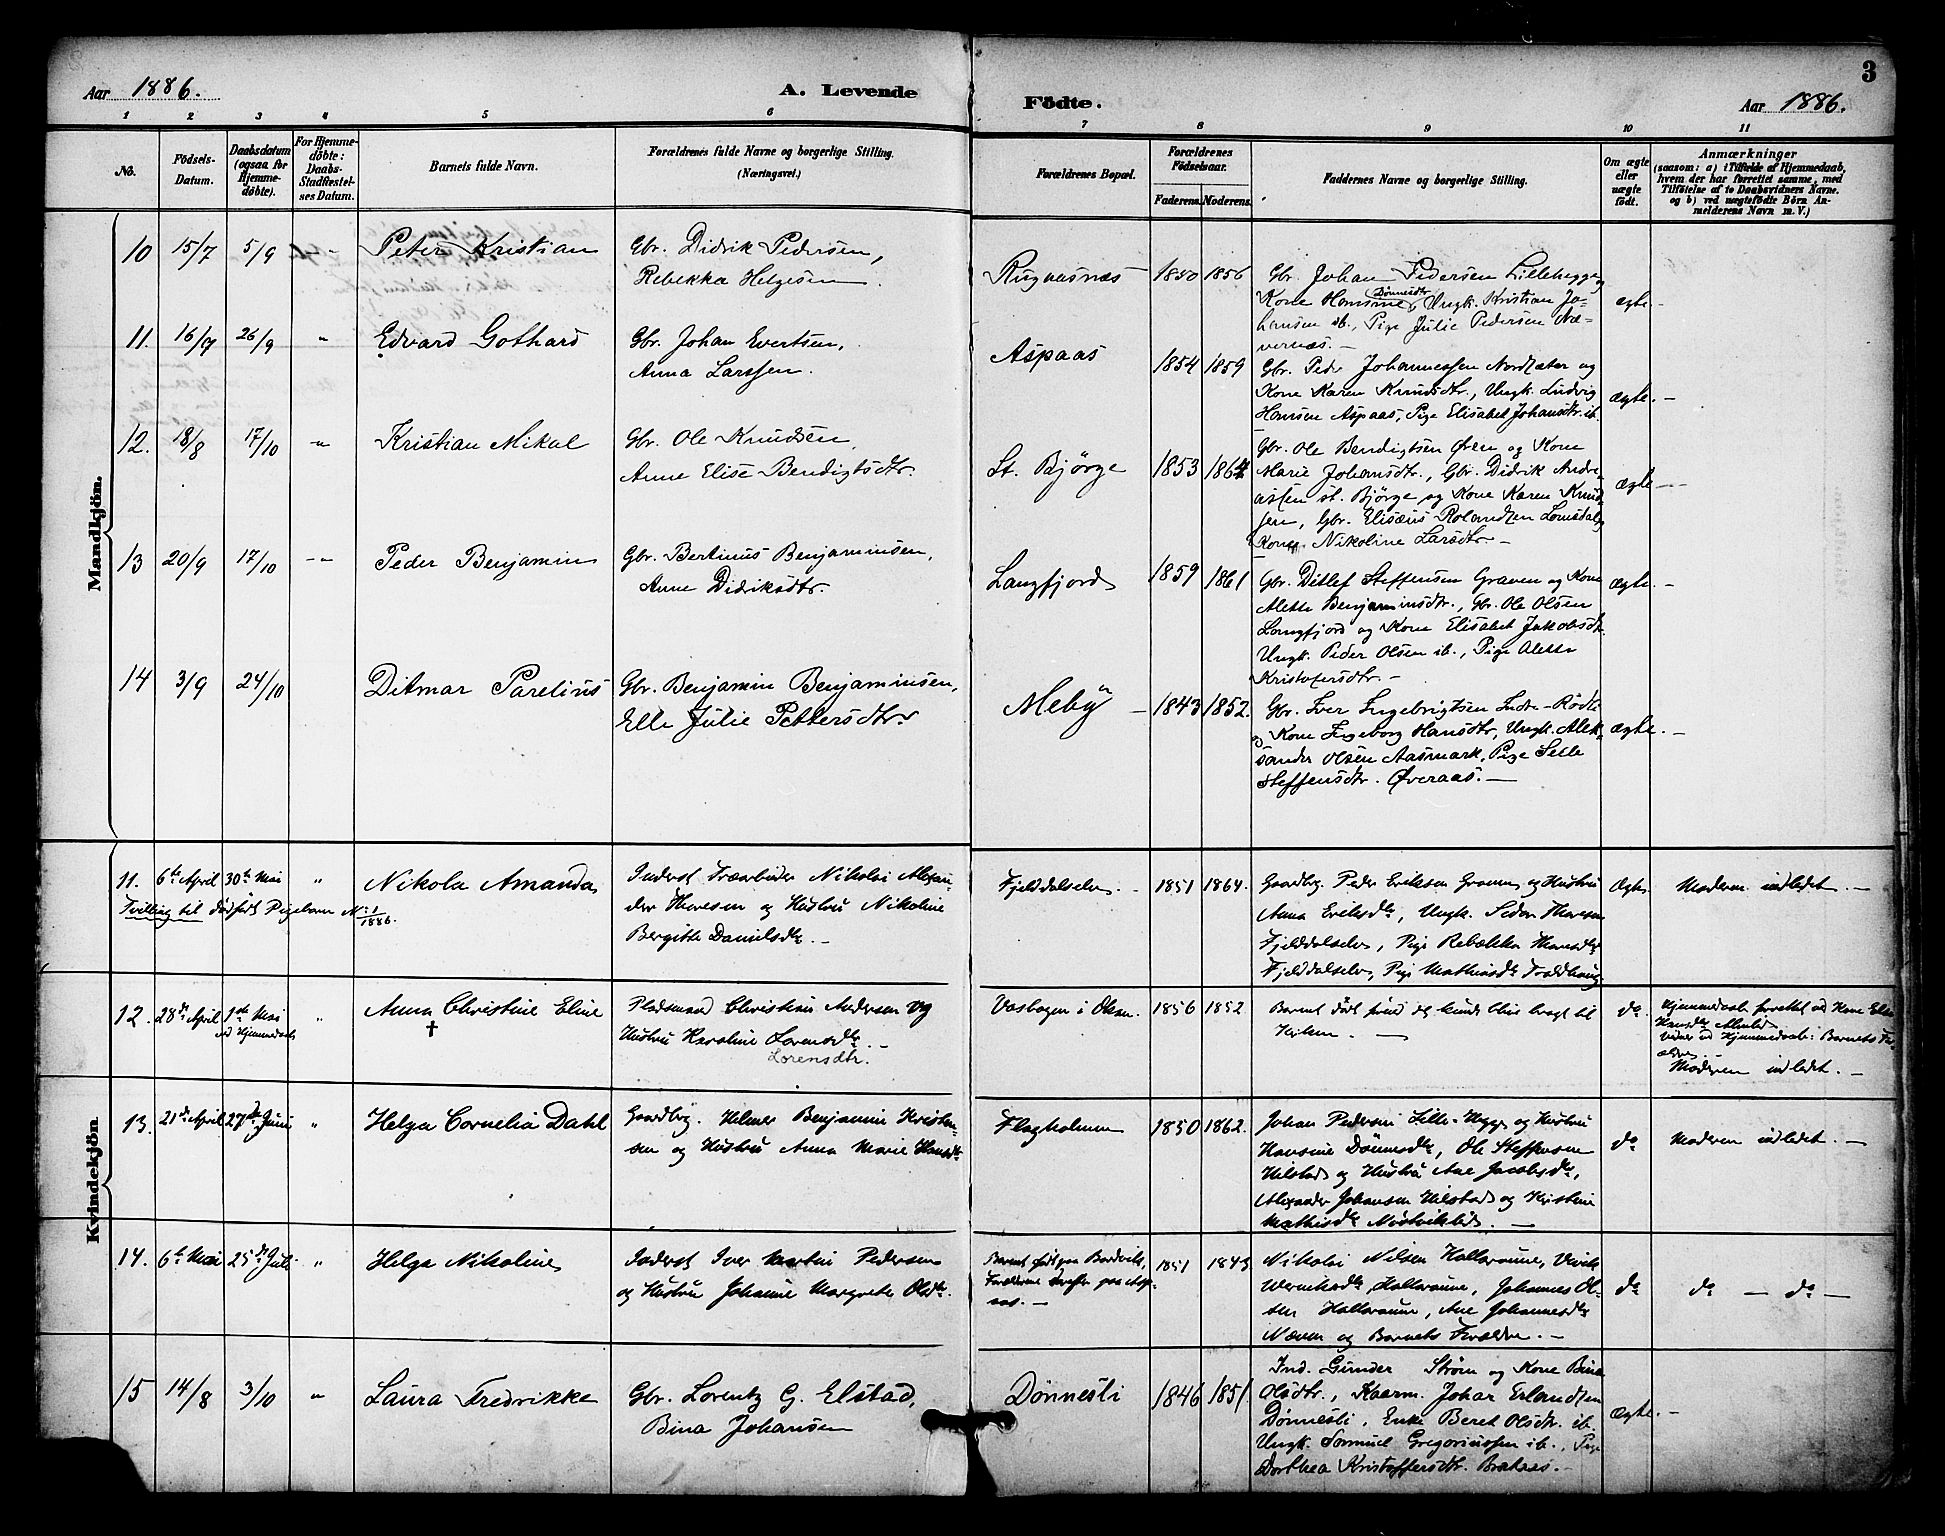 3
Aar 1886.
A. Levende Födte.
Aar 1886.
1 2 3 4 5 6 7 8 9 10 11
No.
Födsels-
Datum.
Daabsdatum
(ogsaa for
Hjemme-
döbte).
For Hjemme-
døbte:
Daabs-
Stadfæstel-
ses Datum.
Barnets fulde Navn.
Forældrenes fulde Navne og borgerlige Stilling.
(Næringsvei.)
Forældrenes Bopæl.
Forældrenes
Födselsaar.
Faderens. Moderens.
Faddernes Navne og borgerlige Stilling.
Om ægte
eller
uægte
födt.
Anmærkninger
(saasom: a) i Tilfælde af Hjemmedaab,
hvem der har forrettet samme, med
Tilföielse af to Daabsvidners Navne.
og b) ved uægtefödte Börn An-
melderens Navn m. V.)
Mandkjön.
10 15/7 5/9 " Peter Kristian
Gbr. Didrik Pedersen,
Rebekka Helgesen.
Rugaasnæs 1850 1856
Gbr. Johan Pedersen Lillehegge og
Kone Hansine Dønnesdtr, Ungk. Kristian Jo-
hansen ib., Pige Julie Pedersen Næ-
vernæs. –
ægte –
11. 16/7 26/9 " Edvard Gothard
Gbr. Johan Evertsen,
Anna Larssen.
Aspaas 1854 1859
Gbr. Peder Johannessen Nordsæter og
Kone Karen Knudsdtr., Ungk. Ludvig
Hansen Aspaas, Pige Elisabet Johansdtr. ib.
ægte. –
12. 18/8 17/10 " Kristian Mikal
Gbr. Ole Knudsen,
Anne Elise Bendigtsdtr.
St. Bjørge 1853 1864
Gbr. Ole Bendigtsen Øren og Kone
Marie Johansdtr., Gbr. Didrik Andre-
assen st. Bjørge og Kone Karen Knud-
sen, Gbr. Elisæus Rolandsen Lomsdal og
Kone Nikoline Larsdtr. –
ægte –
13 20/9 17/10 " Peder Benjamin
Gbr. Bertinus Benjaminsen,
Anne Didriksdtr.
Langfjord 1859 1861
Gbr. Ditlef Steffensen Graven og Kone
Alette Benjaminsdtr., Gbr. Ole Olsen
Langfjord og Kone Elisabet Jakobsdtr.
Ungk. Peder Olsen ib., Pige Alette
Kristofersdtr. –
ægte. –
14 3/9 24/10 Ditmar Parelius
Gbr. Benjamin Benjaminsen,
Elle Julie Pettersdtr.
Meby – 1843 1852.
Gbr. Iver Ingebrigtsen Indre-Rødli
og Kone Ingeborg Hansdtr, Ungk. Alek-
sander Olsen Aasmark, Pige Selle
Steffensdtr. Øveraas. –
ægte. –
Kvindekjön.
11. 6te April 30te Mai " Nikola Amanda
Tvilling til dødfødt Pigebarn No 1/1886.
Inderst Træarbeider Nikolai Alexan
der Thoresen og Hustru Nikoline
Bergitte Danielsdtr. –
Fjelddalselv. – 1851 1864.
Gaardbrg. Peder Eriksen Graven og Hustru
Anna Eriksdtr, Ungk. Peder Thoresen
Fjelddalselv, Pige Rebækka Thoresdtr
Fjelddalselv, Pige Mathisdtr
Ægte. Moderen indledet. –
12. 28de April 1ste Mai " Anna Christine Eline
ved Hjemmedaab
†
Pladsmand Christian Andersen og
Hustru Karoline Lorensdtr. –
Lorensdtr.
Vasbogen i 1856 1852
Barnet døde førend det kunde blive bragt til
Kirken. –
do. Hjemmedaab forrettet ved Kone
Vidner ved Hjemmedaab: Barnets Fo-
rældre. –
Moderen indledet. –
13. 21de April 27de Juni " Helga Cornelia Dahl
Gaardbrg. Hilmer Benjamin Kristen-
sen og Hustru Anna Marie Hansdtr
Flagholmen 1850 1862.
Johan Pedersen Lille-Hegge og Hustru
Hansine Dønnesdtr, Ole Steffensen
Hilstad og Hustru Ane Jacobsdtr,
Alexander Johansen Hilstad og Kristine
Mathisdtr Nøstviklid. –
do Moderen indledet. –
14. 6te Mai 25de Juli " Helga Nikoline
Inderst Iver Martin Pedersen
og Hustru Johanne Margrete Olsdtr.
Barnet født paa Bardvik,
Forældrene derefter paa Asp-
aas. –
1851 1843
Nikolai Nilsen Hallaraune,
Hallaraune, Johannes Ol-
sen Hallaraune, Ane Johannesdtr
Næven og Barnets Forældre. –
do do – do –
15 14/8 3/10 " Laura Fredrikke
Gbr. Lorentz G. Elstad,
Bina Johansen
Dønnesli 1846 1851.
Ind. Gunder Strøm og Kone Bina
Olsdtr., Kaarm. Johan Erlandsen
Dønnesli, Enke Beret Olsdtr. ib.
Ungk. Samuel Gregoriussen ib., Pige
Dorthea Kristoffersdtr. Brataas. –
ægte. –